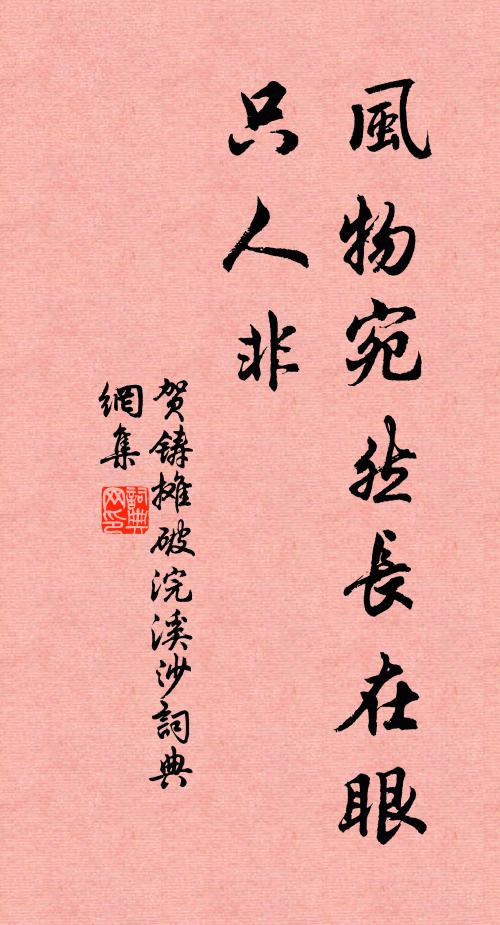 風物宛然長在眼
只人非
贺鑄攤破浣溪沙詞典
網集
詞典
网印